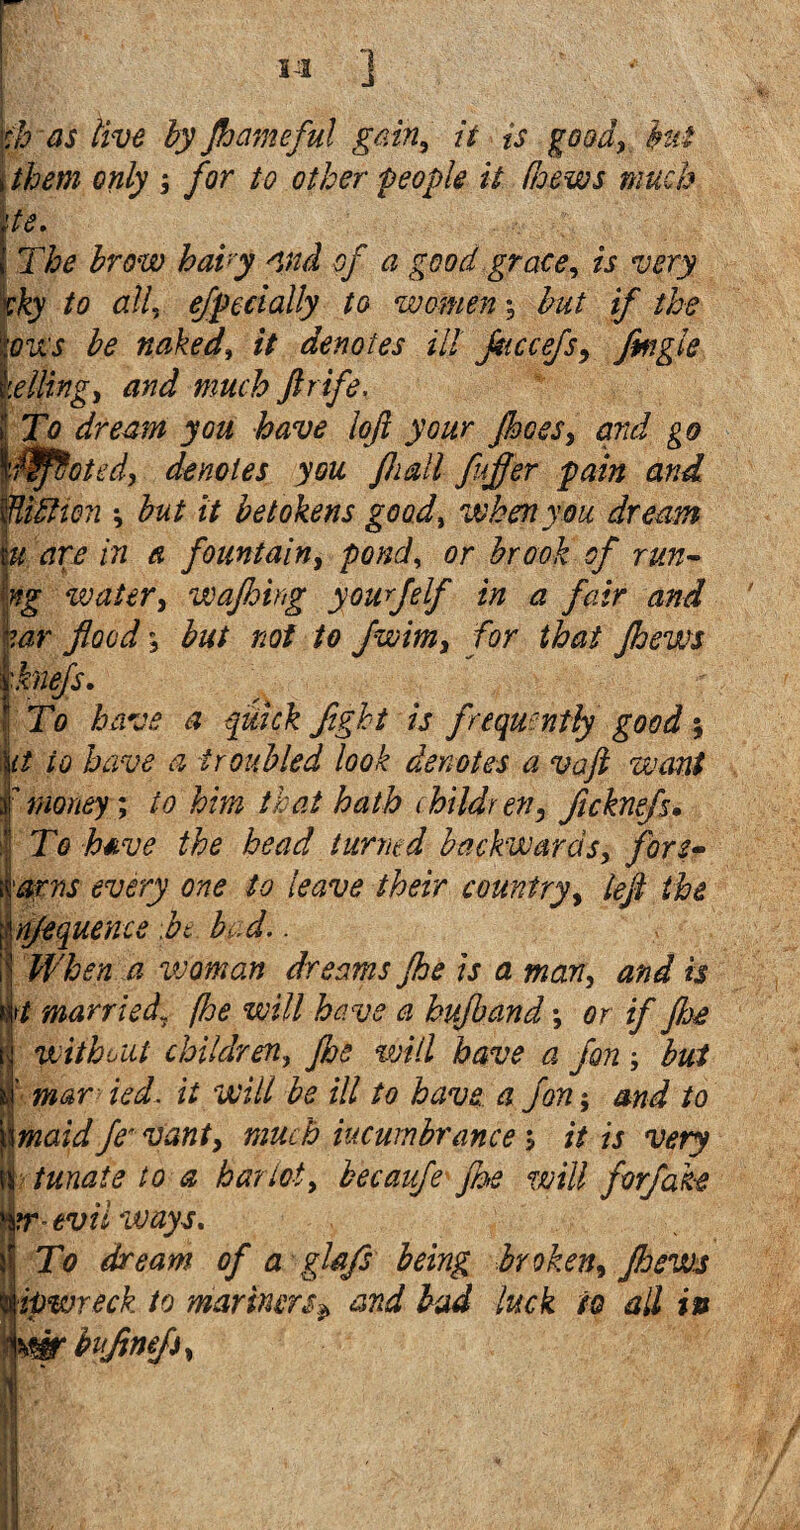 ]
as live by ſhameful gain, it is good, but
them only ; for to other people it ſhews much
The brow hairy and of a good grace, is very
to all, eſpecially to women ; but if the
be naked, it denotes ill ſucceſs, ſingle
and much ſtrife.
To dream you have loſt your ſhoes, and go
denotes you ſhall ſuffer pain and
; but it betokens good, when you dream
are in a fountain, pond, or brook of run-
water, waſhing yourſelf in a fair and
flood ; but not to ſwim, for that ſhews
To have a quick ſight is frequently good ;
to have a troubled look denotes a vaſt want
money ; to him that hath children, ſickneſs.
To have the head turned backwards, fore-
every one to leave their country, leſt the
be bad..
When a woman dreams ſhe is a man, and is
married, ſhe will have a huſband ; or if ſhe
without children, ſhe will have a ſon ; but
married. it will be ill to have a ſon ; and to
maid ſervant, much iucumbrance ; it is very
tunate to a harlot, becauſe ſhe will forſake
evil ways.
To dream of a glaſs being broken, ſhews
to mariners, and bad luck to all in
buſineſs,